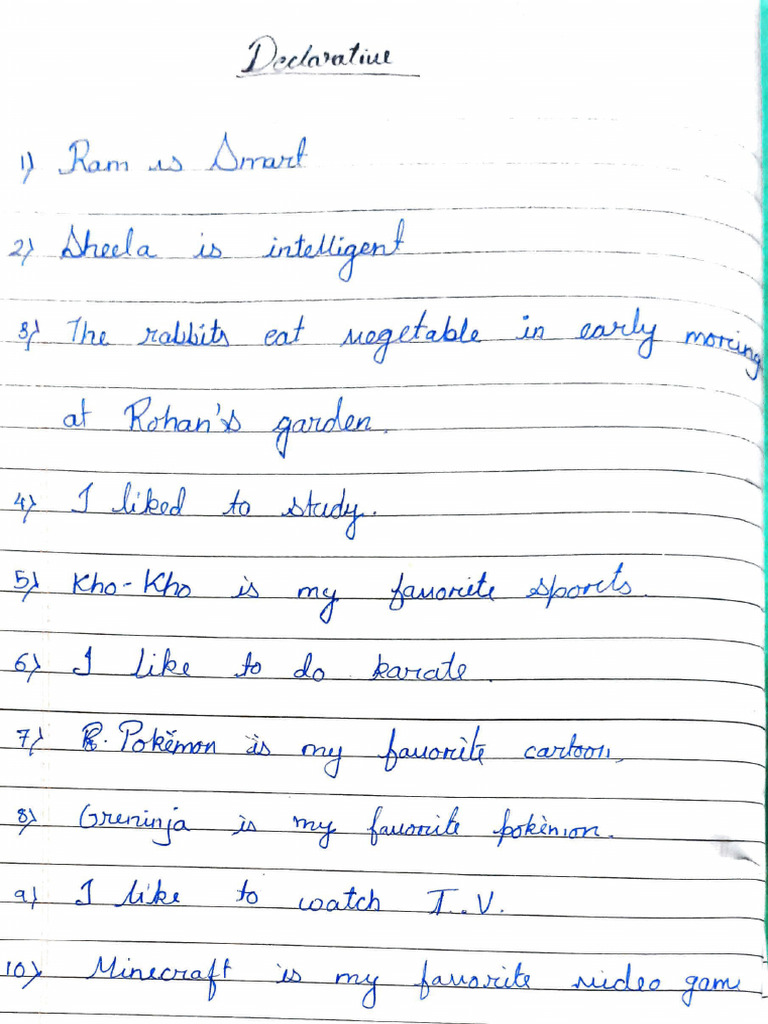 Declarative
1) Ram is Smart
2) Sheela is intelligent
3) The rabbits eat vegetable in early morcing
at Rohan's garden.
4) I liked to study.
5) Kho-Kho is my favorite sports.
6) I like to do karate.
7) Pokěmon is my favorite cartoon.
8) Greninja is my favorite pokěmon.
9) I like to watch T.V.
10) Minecraft is my favorite video game